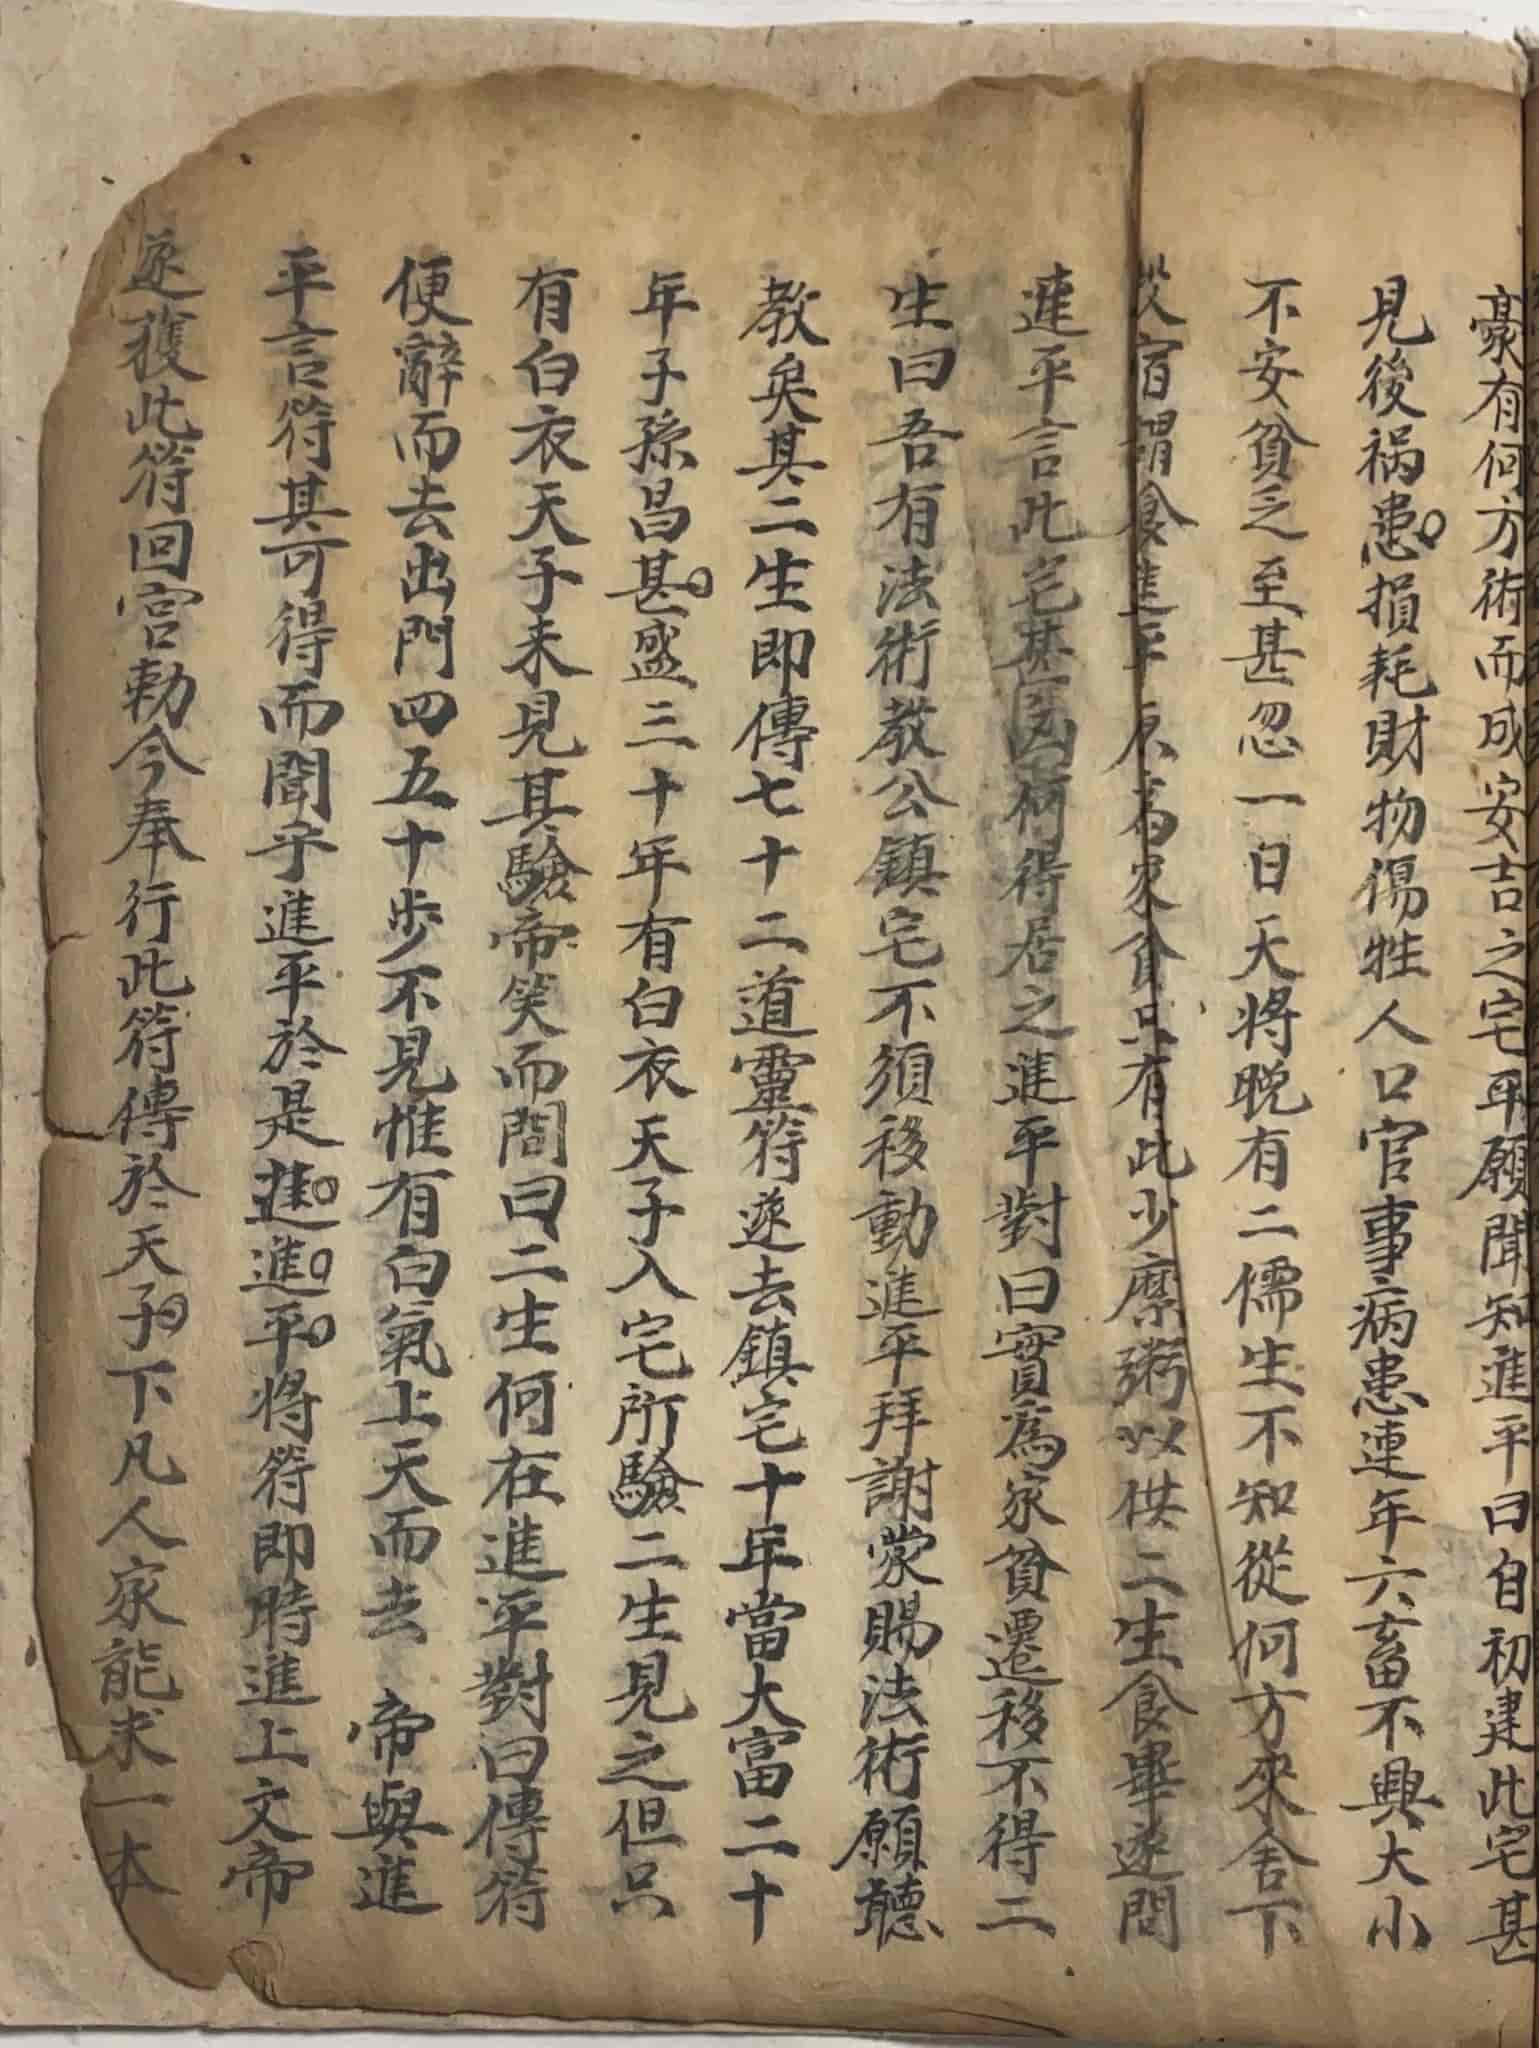 豪有何方術而成安吉之宅平願聞知進平曰自初建此宅甚
見後祸患損耗財物傷牲人口官事病患連年六畜不興大小
不安貧乏至甚忽一日天將晚有二儒生不知從何方來舍下
宿謂食進平原為家貧只有此少糜粥以供二生食畢遂問
進平言此宅甚凶何得居之進平對曰實為家貧遷移不得二
生曰吾有法術教公鎮宅不須移動進平拜謝蒙賜法術願聽
教矣其二生即傳七十二道靈符遂去鎮宅十年當大富二十
年子孫昌甚盛三十年有白衣天子入宅所驗二生見之但只
有白衣天子来見其驗帝笑而問曰二生何在進平對曰傳符
便辭而去出門四五十步不見惟有白氣上天而去 帝與進
平言符其可得而聞乎進平於是進進平將符即時進上文帝
遂獲此符回宮勅今奉行此符傳於天子下凡人家能求一本